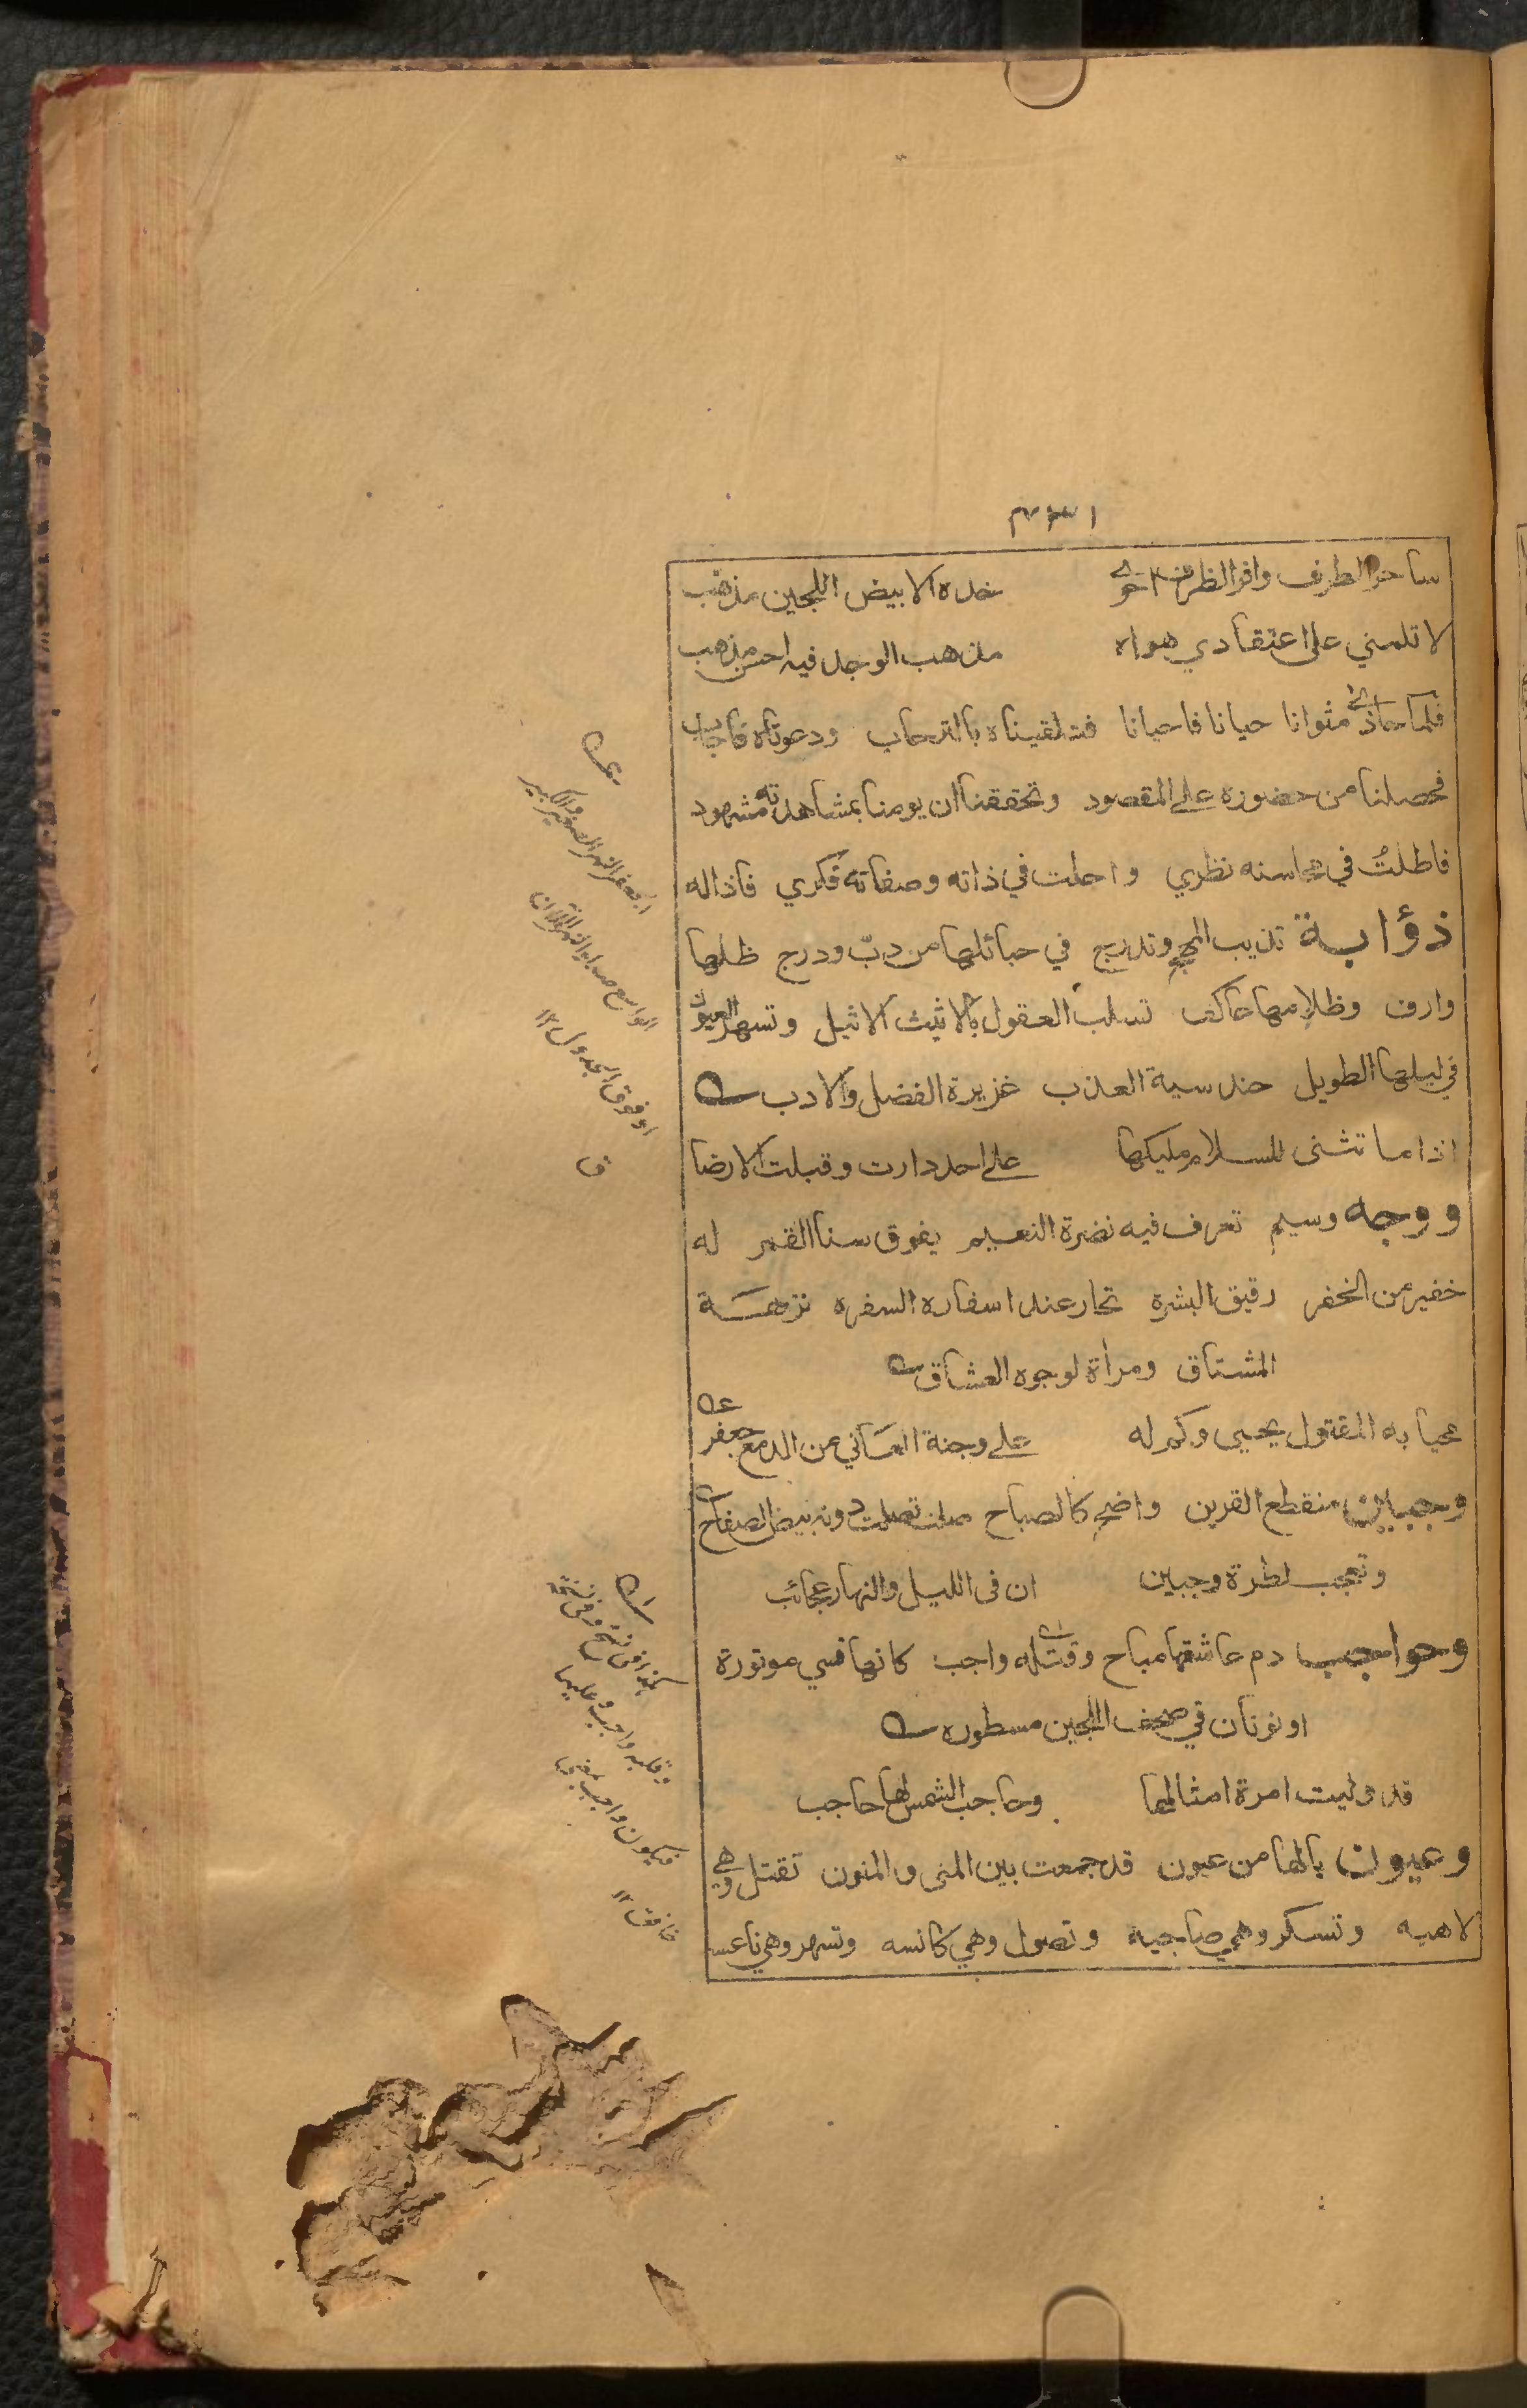 ساحر الطرف وافر الظرف احوى خده الابيض اللجين مذهب
لا تلمني على اعتقادي هواه مذهب الوجد فيه احسن مذهب
فلما حاذى مثوانا حيانا فاحيانا فتلقيناه بالترحاب ودعوناه فاجاب
فحصلنا من حضوره على المقصود وتحققنا ان يومنا بمشاهدته مشهود
فاطلتُ في محاسنه نظري واجلت في ذاته وصفاته فكري فاذا له
ذؤابة تذيب المهج وتدرج في حبائلها من دبّ ودرج ظلها
وارف وظلامها عاكف تسلب العقول بالاثيث الاثيل وتسهر العيون
في ليلها الطويل حندسية العذب غزيرة الفضل والادب
اذا ما تثنى للسلام مليكها على احد دارت وقبلت الارضا
ووجه وسيم تعرف فيه نضرة النعيم يفوق سنا القمر له
خفير من الخفر رقيق البشرة تحار عند اسفاره السفره نزهة
المشتاق ومرأة لوجوه العشاق
محيا به المقتول يحيى وكم له على وجنة العاني من الدمع جعفر
وجبين منقطع القرين واضح كالصباح صلت تصلت دونه بيض الصفاح
وتعجب لطرة وجبين ان في الليل والنهار عجائب
وحواجب دم عاشقها مباح وقتله واجب كانها قسي موتورة
او نونان في صحف اللجين مسطوره
قد وليت امرة امثالها وحاجب الشمس لها حاجب
وعيون يالها من عيون قد جمعت بين المنى والمنون تقتل وهي
لاهيه وتسكر وهي صاحية وتصول وهي كانسه وتسهر وهي ناعسه
الجعفر النهر الصغير والكبير
الواسع ضد او النهر الملآن
او فوق الجدول ١٢
ق
كذا في نسخ وفي نسخة
وقلبه واجب وعليها
فيكون واجب بمعنى
خافق ١٢